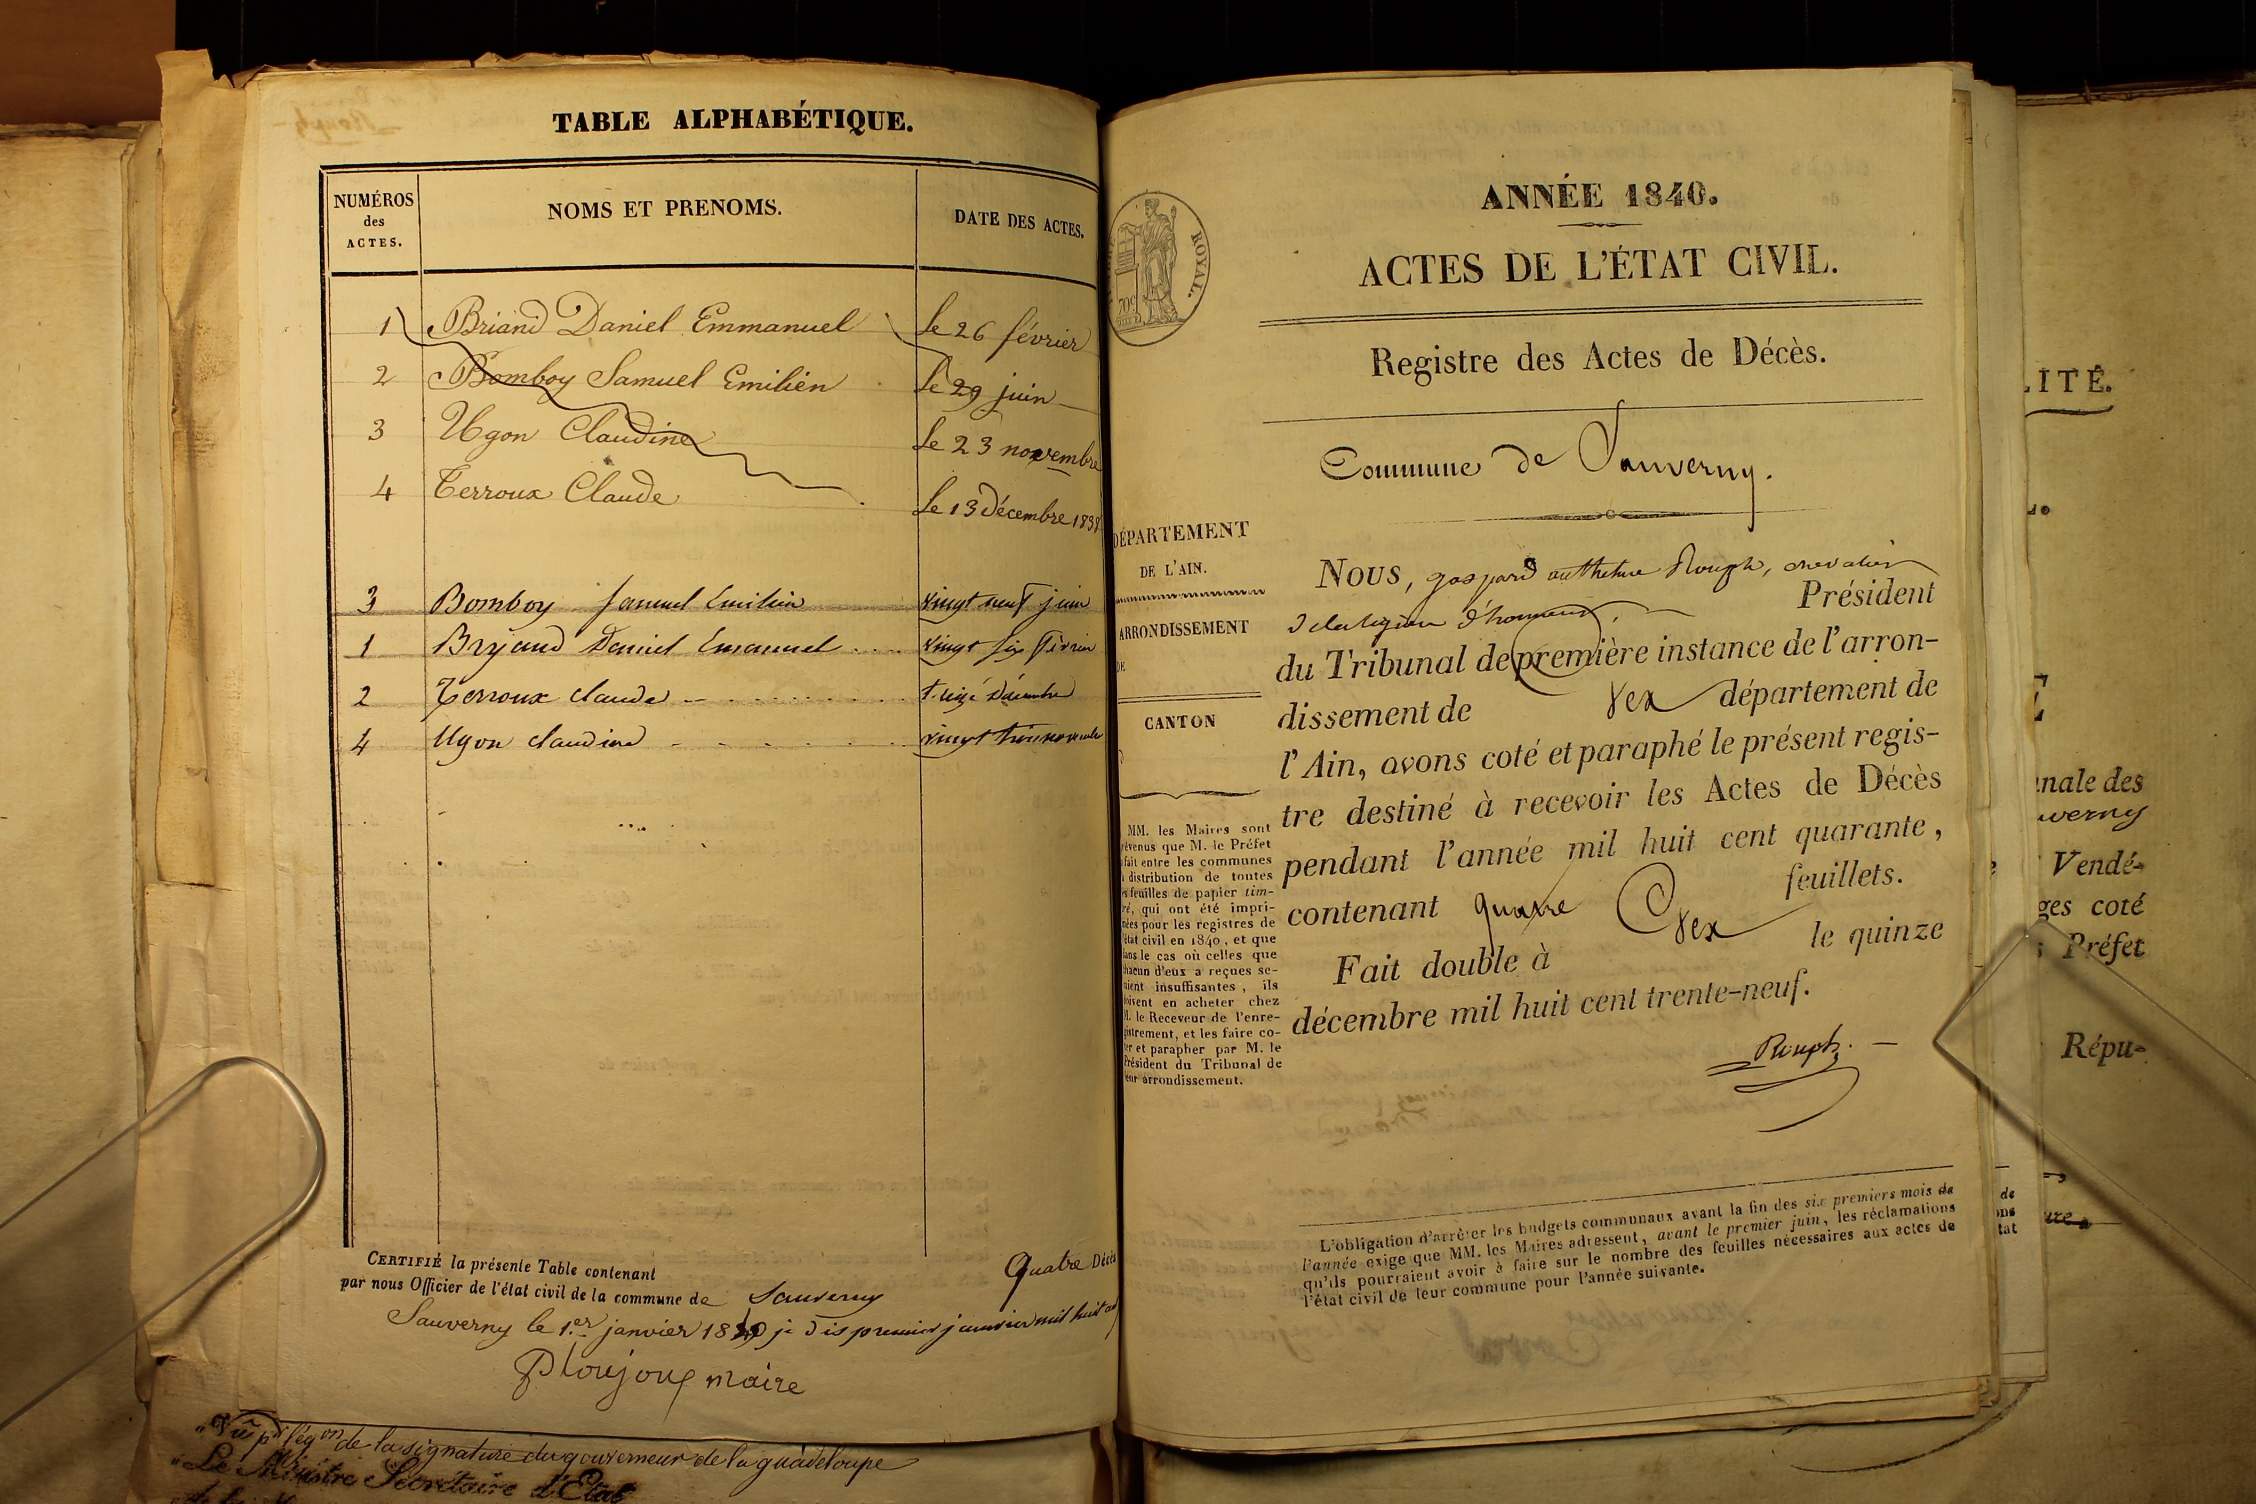 TABLE ALPHABÉTIQUE.
NUMÉROS
des
ACTES.
NOMS ET PRENOMS.
DATE DES ACTES.
1 Briand Daniel Emmanuel le 26 février
2 Bomboy Samuel Emilien le 29 juin
3 Ugon Claudine le 23 novembre
4 Terroux Claude le 13 décembre 183
3 Bomboy Samuel Emilien vingt neuf juin
1 Bryand Daniel Emanuel vingt six février
2 Terroux claude treize décembre
4 Ugon claudine vingt trois novembre
CERTIFIÉ la présente Table contenant Quatre Décès
par nous Officier de l'état civil de la commune de Sauverny
Sauverny le 1.er janvier 18 je dis premier janvier mil huit
maire
Vu pr légon de la signature du gouverneur de la guadeloupe
Le Ministre Secrétaire d'Etat
ROYAL.
70c
ANNÉE 1840.
ACTES DE L'ÉTAT CIVIL.
Registre des Actes de Décès.
Commune de Sauverny.
DÉPARTEMENT
DE L'AIN.
ARRONDISSEMENT
DE
CANTON
MM. les Maires sont
prévenus que M. le Préfet
fait entre les communes
distribution de toutes
feuilles de papier tim-
bré, qui ont été impri-
mées pour les registres de
l'état civil en 1840, et que
dans le cas où celles que
chacun d'eux a reçues se-
raient insuffisantes, ils
doivent en acheter chez
M. le Receveur de l'enre-
gistrement, et les faire co-
ter et parapher par M. le
Président du Tribunal de
leur arrondissement.
Nous, gaspard Rouph, chevalier
de la légion d'honneur, Président
du Tribunal de première instance de l'arron-
dissement de Gex département de
l'Ain, avons coté et paraphé le présent regis-
tre destiné à recevoir les Actes de Décès
pendant l'année mil huit cent quarante,
contenant quatre feuillets.
Fait double à Gex le quinze
décembre mil huit cent trente-neuf.
Rouph.
L'obligation d'arrêter les budgets communaux avant la fin des six premiers mois de
l'année exige que MM. les Maires adressent, avant le premier juin, les réclamations
qu'ils pourraient avoir à faire sur le nombre des feuilles nécessaires aux actes de
l'état civil de leur commune pour l'année suivante.
LITÉ.
nale des
uverny
Vendé-
ges coté
Préfet
Répu-
de
ons
tat